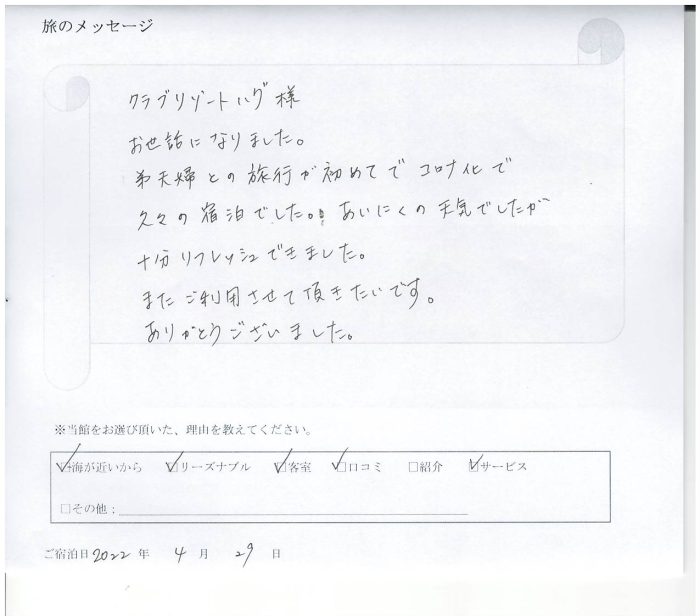 旅のメッセージ
クラブリゾートハグ様
お世話になりました。
弟夫婦との旅行が初めてでコロナ化で
久々の宿泊でした。あいにくの天気でしたが
十分リフレッシュできました。
またご利用させて頂きたいです。
ありがとうございました。
※当館をお選び頂いた、理由を教えてください。
☑海が近いから ☑リーズナブル ☑客室 ☑口コミ □紹介 ☑サービス
□その他：
ご宿泊日 2022 年 4 月 29 日